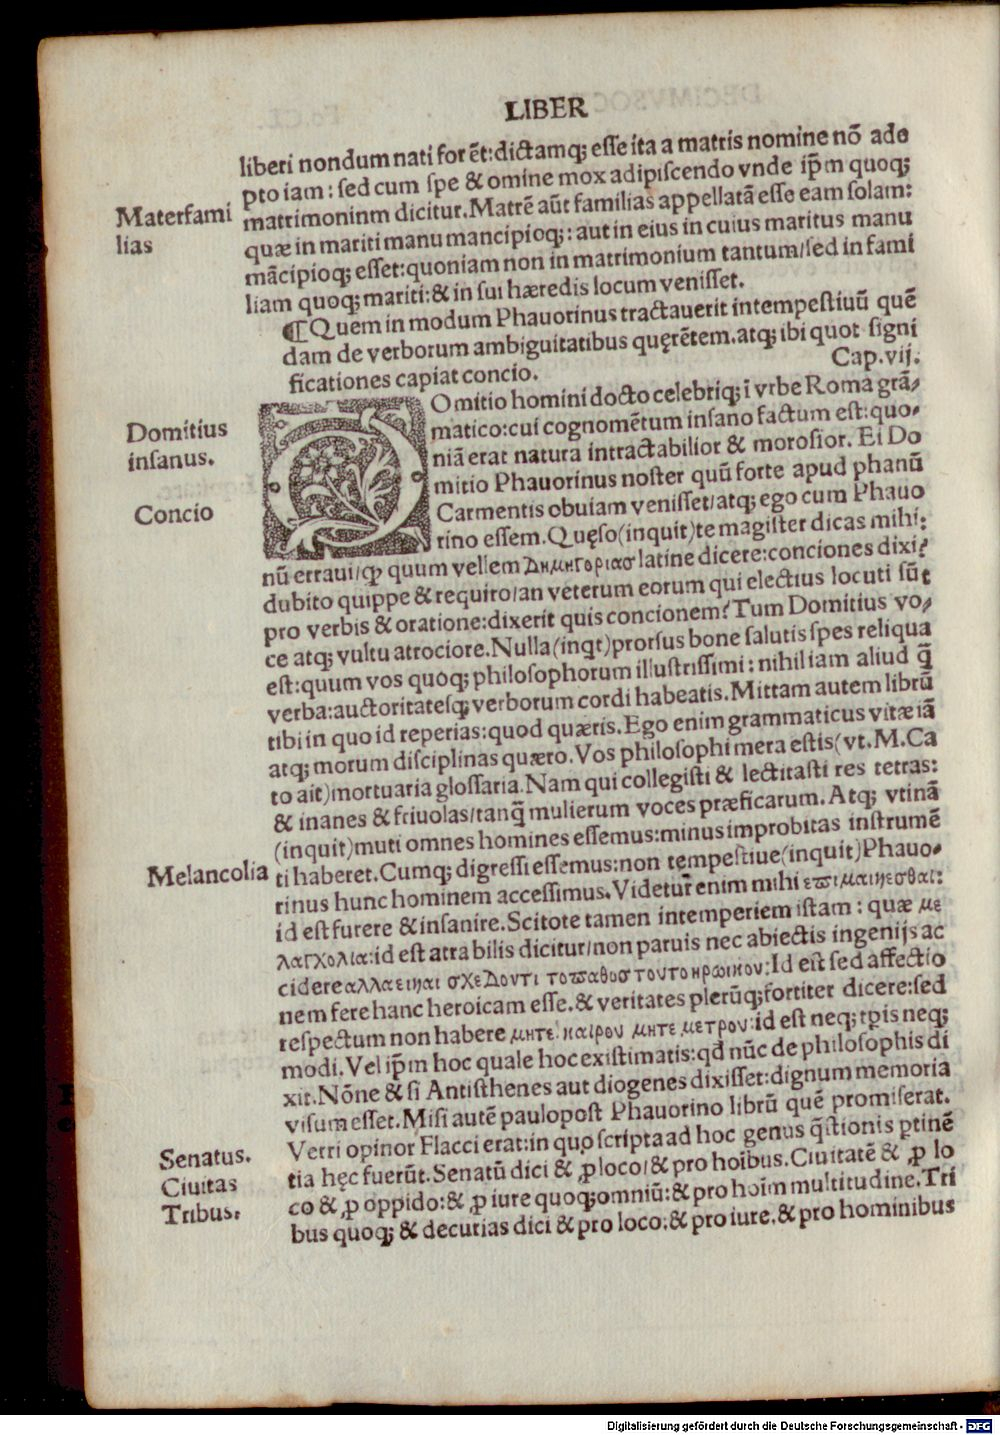 LIBER
liberi nondum nati for ēt:dictamq; esse ita a matris nomine nō ade
pto iam: sed cum spe & omine mox adipiscendo vnde ip̄m quoq;
Materfami
lias
matrimoninm dicitur. Matrē aūt familias appellatā esse eam solam:
quæ in mariti manu mancipioq;: aut in eius in cuius maritus manu
mācipioq; esset: quoniam non in matrimonium tantum/sed in fami
liam quoq; mariti: & in sui hæredis locum venisset.
¶Quem in modum Phauorinus tractauerit intempestiuū quē
dam de verborum ambiguitatibus quęrētem. atq; ibi quot signi
ficationes capiat concio. Cap. vij.
Domitius
insanus.
Concio
DOmitio homini docto celebriq; ī vrbe Roma grā/
matico: cui cognomētum insano factum est: quo/
niā erat natura intractabilior & morosior. Ei Do
mitio Phauorinus noster quū forte apud phanū
Carmentis obuiam venisset/atq; ego cum Phauo
rino essem. Quęso(inquit)te magister dicas mihi:
nū erraui/ꝙ quum vellem Δημηγοριασ latine dicere: conciones dixi?
dubito quippe & requiro/an veterum eorum qui electius locuti sūt
pro verbis & oratione: dixerit quis concionem? Tum Domitius vo/
ce atq; vultu atrociore. Nulla (inqt) prorsus bone salutis spes reliqua
est: quum vos quoq; philosophorum illustrissimi: nihil iam aliud q̄
verba: auctoritatesq; verborum cordi habeatis. Mittam autem librū
tibi in quo id reperias: quod quæris. Ego enim grammaticus vitæ iā
atq; morum disciplinas quæro. Vos philosophi mera estis(vt. M. Ca
to ait) mortuaria glossaria. Nam qui collegisti & lectitasti res tetras:
& inanes & friuolas/tanq̄ mulierum voces præficarum. Atq; vtinā
(inquit) muti omnes homines essemus: minus improbitas instrumē
Melancolia
ti haberet. Cumq; digressi essemus: non tempestiue (inquit) Phauo/
rinus hunc hominem accessimus. Videtur̄ enim mihi επιμαινεσθαι:
id est furere & insanire. Scitote tamen intemperiem istam: quæ με
λαγχολια: id est atra bilis dicitur/non paruis nec abiectis ingenijs ac
cidere αλλαειναι σχεΔοντι τοπαθοσ τουτο ηρωικον: Id est sed affectio
nem fere hanc heroicam esse. & veritates plerūq; fortiter dicere: sed
respectum non habere μητε καιρου μητε μετρου: id est neq; tp̄is neq;
modi. Vel ip̄m hoc quale hoc existimatis: qđ nūc de philosophis di
xit. Nōne & si Antisthenes aut diogenes dixisset: dignum memoria
visum esset. Misi autē paulopost Phauorino librū quē promiserat.
Verri opinor Flacci erat: in quo scripta ad hoc genus q̄stionis ꝑtinē
Senatus.
Ciuitas
Tribus.
tia hęc fuerūt. Senatū dici & ꝓ loco/& pro hoībus. Ciuitatē & ꝓ lo
co & ꝓ oppido: & ꝓ iure quoq; omniū: & pro hoīm multitudine. Tri
bus quoq; & decurias dici & pro loco: & pro iure. & pro hominibus
Digitalisierung gefördert durch die Deutsche Forschungsgemeinschaft - DFG